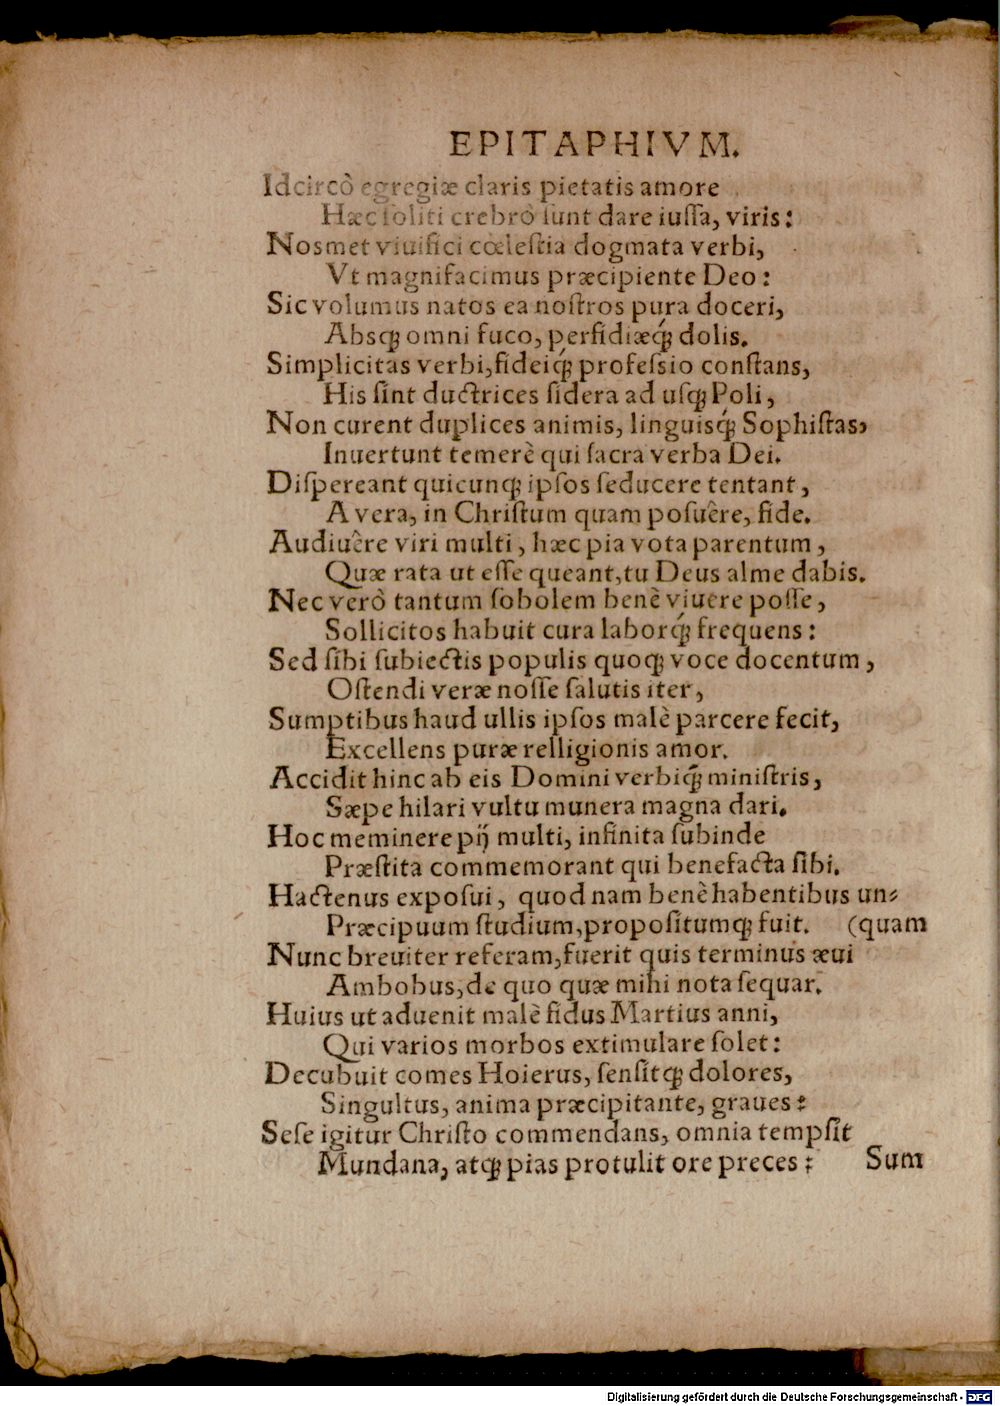 EPITAPHIVM.
Idcircò egregiæ claris pietatis amore
Hæc ſoliti crebrò ſunt dare iuſſa, viris:
Nosmet viuifici cœleſtia dogmata verbi,
Vt magnifacimus præcipiente Deo:
Sic volumus natos ea noſtros pura doceri,
Absq́; omni fuco, perfidiæq́; dolis.
Simplicitas verbi, fideiq́; profeſsio conſtans,
His ſint ductrices ſidera ad uſq; Poli,
Non curent duplices animis, linguisq́; Sophiſtas,
Inuertunt temerè qui ſacra verba Dei.
Diſpereant quicunq; ipſos ſeducere tentant,
A vera, in Chriſtum quam poſuêre, fide.
Audiuêre viri multi, hæc pia vota parentum,
Quæ rata ut eſſe queant, tu Deus alme dabis.
Nec verò tantum ſobolem benè viuere poſſe,
Sollicitos habuit cura laborq́; frequens:
Sed ſibi ſubiectis populis quoq; voce docentum,
Oſtendi veræ noſſe ſalutis iter,
Sumptibus haud ullis ipſos malè parcere fecit,
Excellens puræ relligionis amor.
Accidit hinc ab eis Domini verbiq́; miniſtris,
Sæpe hilari vultu munera magna dari.
Hoc meminere pij multi, infinita ſubinde
Præſtita commemorant qui benefacta ſibi.
Hactenus expoſui, quod nam benè habentibus un⸗
Præcipuum ſtudium, propoſitumq; fuit. (quam
Nunc breuiter referam, fuerit quis terminus æui
Ambobus, de quo quæ mihi nota ſequar.
Huius ut aduenit malè fidus Martius anni,
Qui varios morbos extimulare ſolet:
Decubuit comes Hoierus, ſenſitq; dolores,
Singultus, anima præcipitante, graues:
Seſe igitur Chriſto commendans, omnia tempſit
Mundana, atq; pias protulit ore preces: Sum
Digitalisierung gefördert durch die Deutsche Forschungsgemeinschaft - DFG